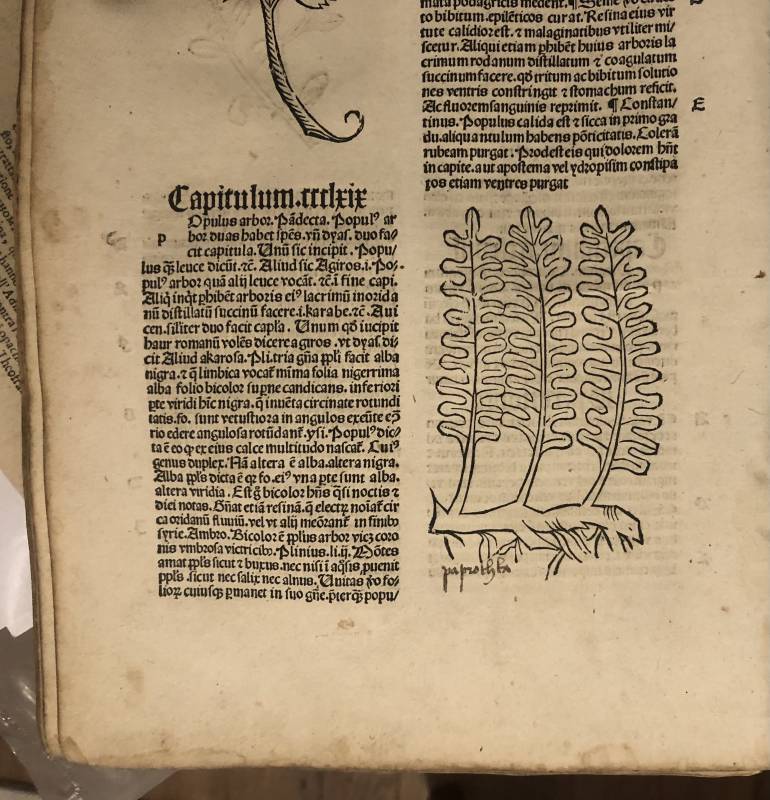 Capitulum.ccclxix
Opulus arbor. Pãdecta. Popul⁹ ar
p bor duas habet spẽs. vñ dyas. duo fa/
cit capitula. Unũ sic incipit. Popu/
lus q̃ leuce dicũt. ⁊c̃. Aliud sic Agiros .i. Po/
pul⁹ arbor quã alij leuce vocãt. ⁊c̃. i fine capi.
Aliq̃ inq̃t phibẽt arboris ei⁹ lacrimũ inorida
nũ distillatũ succinũ facere .i. karabe. ⁊c̃. Aui
cen. siliter duo facit capla. Unum qð iucipit
haur romanũ volẽs dicere agiros. vt dyas. di
cit Aliud akarosa. Pli. tria gña ppli facit alba
nigra. ⁊ q̃ limbica vocat mima folia nigerrima
alba folio bicolor supne candicans. inferiori
pte viridi hĩc nigra. q̃ inuẽta circinate rotundi
tatis. fo. sunt vetustiora in angulos exeũte ec̃
rio edere angulosa rotũdanť. ysi. Popul⁹ dic/
ta ẽ eo q̃ ex eius calce multitudo nascať. Cui⁹
genus duplex. Nã altera ẽ alba. altera nigra.
Alba ppls dicta ẽ q̃ fo. ei⁹ vna pte sunt alba.
altera viridia. Est g̃ bicolor hñs q̃si noctis ⁊
diei notas. Gñat etiã resinã. q̃ electrꝝ noiať cir
ca oridanũ fluuiũ. vel vt alij meõranť in finibꝰ
syrie. Ambro. Bicolor ẽ pplus arbor vicꝫ coro
nis vmbrosa victricibꝰ. Plinius. li. ij. Mõtes
amat ppls sicut ⁊ buxus. nec nisi i aq̃sis puenit
ppls. sicut nec salix nec alnus. Unitas ꝟo fo/
lioꝝ cuiusq̃ pmanet in suo gñe. pterq̃ popu/
mata podagricis medent. ¶ Seme
to bibitum. epilẽticos curat. Resina eius vir
tute calidior est. ⁊ malaginatibus vtiliter mi/
scetur. Aliqui etiam phibẽt huius arboris la
crimum rodanum distillatum ⁊ coagulatum
succinum facere. qð tritum ac bibitum solutio
nes ventris constringit ⁊ stomachum reficit.
Ac fluorem sanguinis reprimit. ¶ Constan/ E
tinus. Populus calida est ⁊ sicca in primo gra
du. aliquantulum habens põticitatis. Colerã
rubeam purgat. Prodest eis qui dolorem hñt
in capite. aut apostema vel ydropisim constipa
tos etiam ventres purgat
paprothka